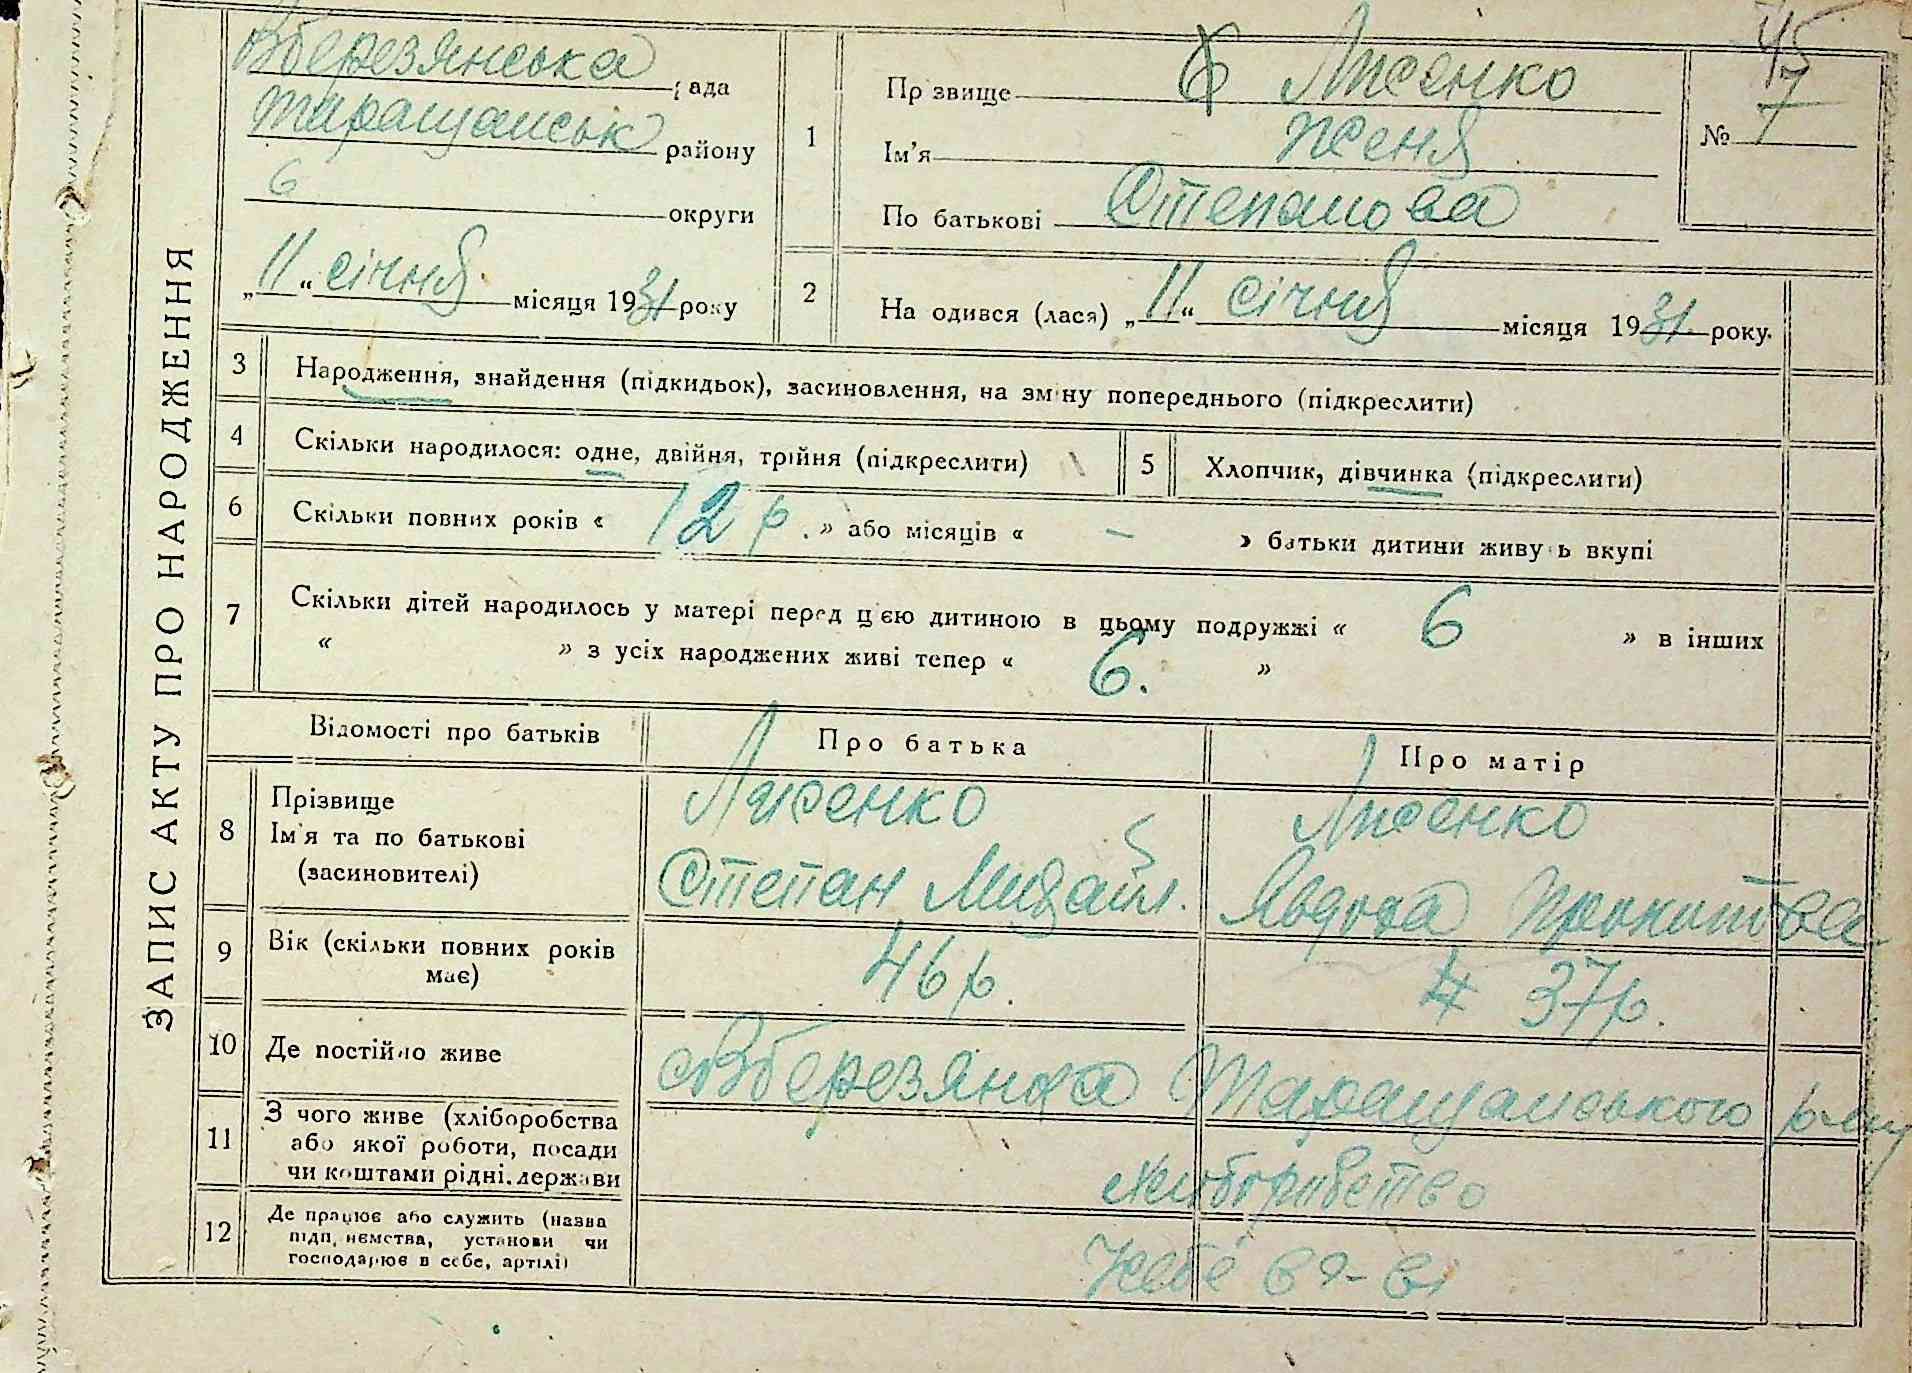 ЗАПИС АКТУ ПРО НАРОДЖЕННЯ
Вберезянська рада
Таращанськ району
б округи
„11“ січня місяця 1931 року
45
№ 7
1 Прізвище Лисенко
Ім'я Женя
По батькові Степанова
2 Народився (лася) „11“ січня місяця 1931 року.
3 Народження, знайдення (підкидьок), засиновлення, на зміну попереднього (підкреслити)
4 Скільки народилося: одне, двійня, трійня (підкреслити)
5 Хлопчик, дівчинка (підкреслити)
6 Скільки повних років « 12 р. » або місяців « – » батьки дитини живуть вкупі
7 Скільки дітей народилось у матері перед цією дитиною в цьому подружжі « 6 » в інших
« » з усіх народжених живі тепер « 6. »
Відомості про батьків Про батька Про матір
8 Прізвище Лисенко Лисенко
Ім'я та по батькові
(засиновителі) Степан Михайл. Явдоха
9 Вік (скільки повних років
має) 46 р. 37 р.
10 Де постійно живе Вберезянка Таращанського р-ну
11 З чого живе (хліборобства
або якої роботи, посади
чи коштами рідні, держави
12 Де працює або служить (назва
підприємства, установи чи
господарює в себе, артілі)